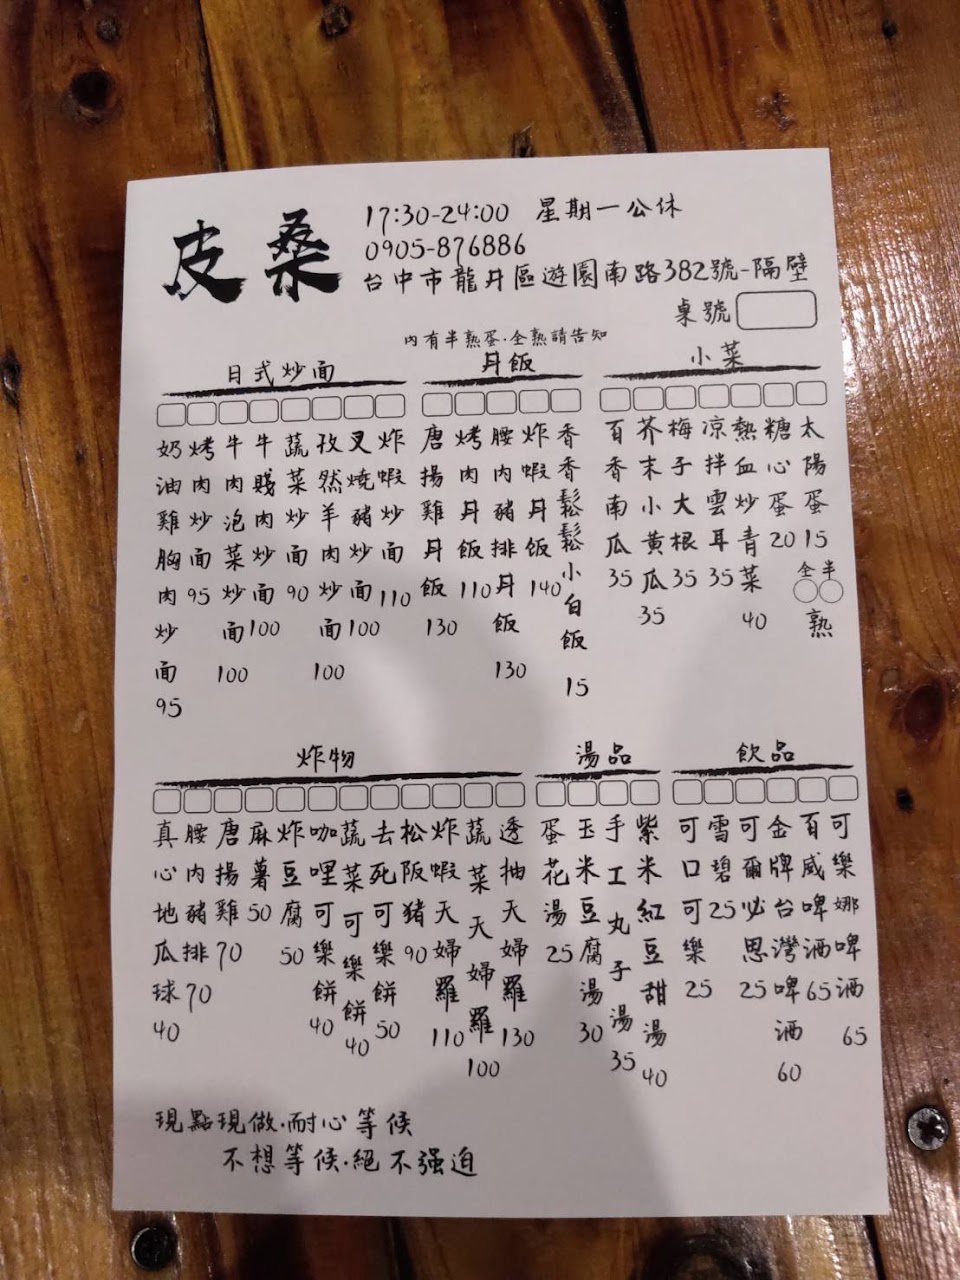 皮桑
17:30-24:00 星期一公休
0905-876886
台中市龍井區遊園南路382號-隔壁
桌號
內有半熟蛋.全熟請告知
日式炒面
奶油雞胸肉炒面95
烤肉炒面95
牛肉泡菜炒面100
牛賤肉炒面100
蔬菜炒面90
孜然羊肉炒面100
叉燒豬炒面100
炸蝦炒面110
丼飯
唐揚雞丼飯130
烤肉丼飯110
腰內豬排丼飯130
炸蝦丼飯140
香香鬆鬆小白飯15
小菜
百香南瓜35
芥末小黃瓜35
梅子大根35
凉拌雲耳35
熱血炒青菜40
糖心蛋20
太陽蛋15
全半
熟
炸物
真心地瓜球40
腰內豬排70
唐揚雞70
麻薯50
炸豆腐50
咖哩可樂餅40
蔬菜可樂餅40
去死可樂餅50
松阪猪90
炸蝦天婦羅110
蔬菜天婦羅100
透抽天婦羅130
湯品
蛋花湯25
玉米豆腐湯30
手工丸子湯35
紫米紅豆甜湯40
飲品
可口可樂25
雪碧25
可爾必思25
金牌台灣啤酒60
百威啤酒65
可樂娜啤酒65
現點現做.耐心等候
不想等候.絕不强迫